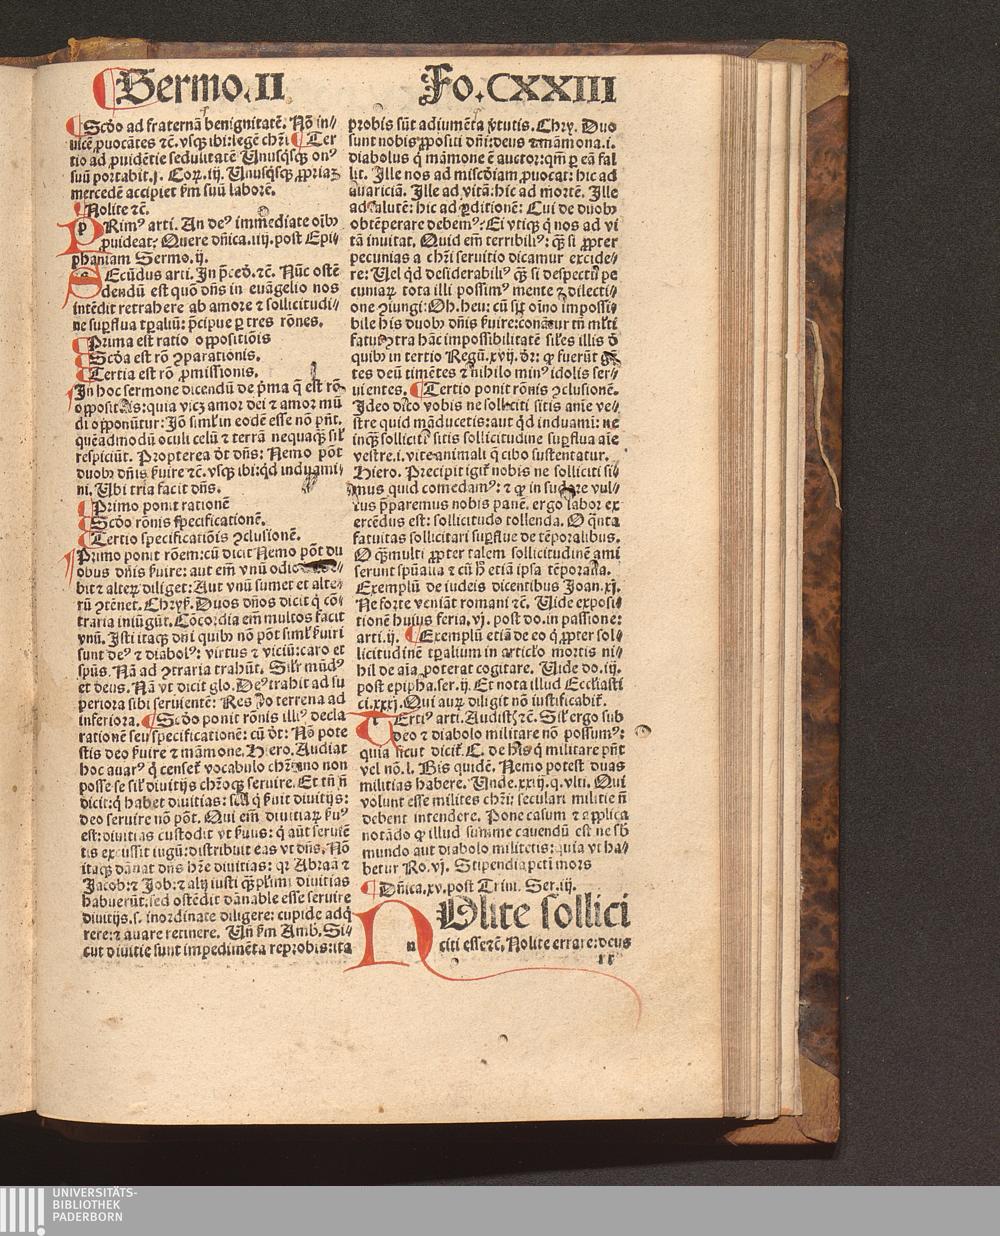 Sermo.II
Fo.CXXIII
Scd̄o ad fraternā benignitatē. Nō in⸗
uicē ꝓuocātes ⁊c̄. vsqꝫ ibi:legē chr̄i Ter
tio ad ꝓuidētie sedulitatē Unusq̄sqꝫ onꝰ
suū portabit.j. Coꝝ.iij. Unusq̄sqꝫ ꝓpriaꝫ
mercedē accipiet ẜm suū laborē.
Nolite ⁊c̄.
pRimꝰ arti. An deꝰ immediate oīb
ꝓuideat: Quere dn̄ica.iiij.post Epi⸗
phaniam Sermo.ij.
sEcūdus arti. In p̄ced̄.⁊c̄. Nūc ostē
dendū est quō dn̄s in euāgelio nos
intēdit retrahere ab amore ⁊ sollicitudi⸗
ne suꝑflua tꝑaliū: p̄cipue ꝑ tres rōnes.
Prima est ratio oppositiōis
Scd̄a est rō ꝯparationis.
Tertia est rō ꝓmissionis.
In hoc sermone dicendū de p̄ma q̄ est rō
oppositōis:quia vicꝫ amor dei ⁊ amor mū
di opponūtur: Iō siml̓ in eodē esse nō pn̄t.
quēadmodū oculi celū ⁊ terrā nequaqꝫ sil̓
respiciūt. Propterea d̄t dn̄s: Nemo pōt
duob dn̄is ẜuire ⁊c̄. vsqꝫ ibi:qd̓ induami⸗
ni. Ubi tria facit dn̄s.
Primo ponit rationē
Scd̄o rōnis specificationē.
Tertio specificatiōis ꝯclusionē.
Primo ponit rōem:cū dicit Nemo pōt du
obus dn̄is ẜuire: aut em̄ vnū odio
bit ⁊ alteꝝ diliget: Aut vnū sumet et alte⸗
rū ꝯtēnet. Chryẜ. Duos dn̄os dicit q̇ cō⸗
traria iniūgūt. Cōcordia em̄ multos facit
vnū. Isti itaqꝫ dn̄i quib nō pōt siml̓ ẜuiri
sunt deꝰ ⁊ diabolꝰ: virtus ⁊ viciū:caro et
spūs. Nā ad ꝯtraria trahūt. Sil̓r mūdꝰ
et deus. Nā vt dicit glo. Deꝰ trahit ad su
periora sibi seruientē: Res v̓o terrena ad
inferiora. Scd̄o ponit rōnis illiꝰ decla
rationē seu specificationē: cū d̄t: Nō pote
stis deo ẜuire ⁊ māmone. Hiero. Audiat
hoc auarꝰ q̇ censet̓ vocabulo chr̄iano non
posse se sil̓ diuitijs chr̄oqꝫ seruire. Et tn̄ n̄
dicit:q̇ habet diuitias: sed q̇ ẜuit diuitijs:
deo seruire nō pōt. Qui em̄ diuitiaꝝ ẜuꝰ
est:diuitias custodit vt ẜuus: q̇ aūt seruiē
tis excussit iugū:distribuit eas vt dn̄s. Nō
itaqꝫ dānat dn̄s hr̄e diuitias: qꝛ Abraā ⁊
Jacob:⁊ Job:⁊ alij iusti qꝫplimi diuitias
habuerūt:sed ostēdit dānable esse seruire
diuitijs.s. inordinate diligere: cupide adq̄
rere:⁊ auare retinere. Un̄ ẜm Amb̄. Si⸗
cut diuitie sunt impedimēta reprobis:ita
probis sūt adiumēta v̓tutis. Chry. Duo
sunt nobis ꝓpositi dn̄i:deus ⁊ māmona.i.
diabolus q̇ māmone ē auctor:qm̄ ꝑ eā fal
lit. Ille nos ad miscd̓iam ꝓuocat: hic ad
auariciā. Ille ad vitā:hic ad mortē. Ille
ad salutē: hic ad ꝑditionē: Cui de duob
obtēperare debemꝰ: Ei vtiqꝫ q̇ nos ad vi
tā inuitat. Quid em̄ terribiliꝰ: qꝫ si ꝓpter
pecunias a chr̄i seruitio dicamur excide⸗
re: Uel qd̓ desiderabiliꝰ qꝫ si despectū pe
cuniaꝝ tota illi possimꝰ mente ⁊ dilecti⸗
one ꝯiungi: Oh.heu: cū sit̓ oīno impossi⸗
bile his duob dn̄is ẜuire:conāt̓ur tn̄ ml̓ti
fatui ꝯtra hāc impossibilitatē sil̓es illis d̄
quib in tertio Regū.xvij. d̄r: q̇ fuerūt gē
tes deū timētes ⁊ nihilo minꝰ idolis ser⸗
uientes. Tertio ponit rōnis ꝯclusionē.
Ideo dico vobis ne solliciti sitis anīe ve⸗
stre quid māducetis:aut qd̓ induami: ne
inqꝫ solliciti sitis sollicitudine suꝑflua aīe
vestre.i. vite animali q̄ cibo sustentatur.
Hiero. Precipit̓ igit̓ nobis ne solliciti si⸗
mus quid comedamꝰ: ⁊ ꝙ in sudore vul⸗
tus p̄paremus nobis panē. ergo labor ex
ercēdus est: sollicitudo tollenda. O q̄nta
fatuitas sollicitari suꝑflue de tēporalibus.
O qꝫmulti ꝓpter talem sollicitudinē ami
serunt spūalia ⁊ cū h̓ etiā ipsa tēporalia.
Exemplū de iudeis dicentibus Joan.xj.
Ne forte veniāt romani ⁊c̄. Uide exposi⸗
tionē huius feria.vj. post do.in passione:
arti.ij. Exemplū etiā de eo q̇ ꝓpter sol⸗
licitudinē tꝑalium in articl̓o mortis ni⸗
hil de aīa ꝓoterat cogitare. Uide do.iij.
post epipha.ser.ij. Et nota illud Eccl̓iasti
ci.xxxj. Qui auꝝ diligit nō iustificabit̓.
tErtiꝰ arti. Audistꝭ ⁊c̄. Sil̓ ergo sub
deo ⁊ diabolo militare nō possumꝰ:
quia sicut dicit̓. C. de his q̇ militare pn̄t
vel nō.l. Bis quidē. Nemo potest duas
militias habere. Unde.xxiij.q.vlti. Qui
volunt esse milites chr̄i: seculari militie n̄
debent intendere. Pone casum ⁊ applica
notādo ꝙ illud summe cauendū est ne sb̄
mundo aut diabolo militetis: quia vt ha⸗
betur Ro.vj. Stipendia pctī mors
Dn̄ica.xv.post Trini. Ser.iij.
nOlite sollici
citi esse ⁊c̄. Nolite errare:deus
UNIVERSITÄTS-
BIBLIOTHEK
PADERBORN